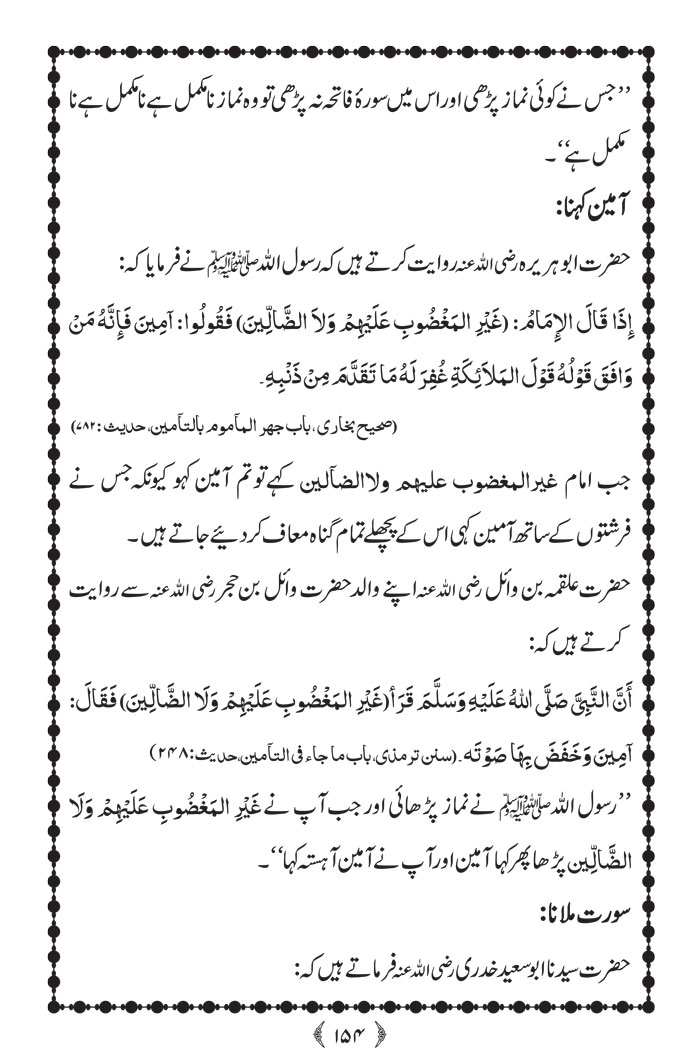 ’’جس نے کوئی نماز پڑھی اور اس میں سورۂ فاتحہ نہ پڑھی تو وہ نماز نامکمل ہے نامکمل ہے نا
مکمل ہے‘‘۔
آمین کہنا:
حضرت ابو ہریرہ رضی اللہ عنہ روایت کرتے ہیں کہ رسول اللہ ﷺ نے فرمایا کہ:
إِذَا قَالَ الإِمَامُ: (غَيْرِ المَغْضُوبِ عَلَيْهِمْ وَلاَ الضَّالِّينَ) فَقُولُوا: آمِينَ فَإِنَّهُ مَنْ
وَافَقَ قَوْلُهُ قَوْلَ المَلاَئِكَةِ غُفِرَ لَهُ مَا تَقَدَّمَ مِنْ ذَنْبِهِ۔
(صحیح بخاری، باب جهر المأموم بالتأمین، حدیث: ۷۸۲)
جب امام غیر المغضوب علیهم ولا الضآلین کہے تو تم آمین کہو کیونکہ جس نے
فرشتوں کے ساتھ آمین کہی اس کے پچھلے تمام گناہ معاف کر دیئے جاتے ہیں۔
حضرت علقمہ بن وائل رضی اللہ عنہ اپنے والد حضرت وائل بن حجر رضی اللہ عنہ سے روایت
کرتے ہیں کہ:
أَنَّ النَّبِيَّ صَلَّى اللهُ عَلَيْهِ وَسَلَّمَ قَرَأَ (غَيْرِ المَغْضُوبِ عَلَيْهِمْ وَلَا الضَّالِّينَ) فَقَالَ:
آمِينَ وَخَفَضَ بِهَا صَوْتَه۔ (سنن ترمذی، باب ما جاء فی التأمین، حدیث: ۲۴۸)
’’رسول اللہ ﷺ نے نماز پڑھائی اور جب آپ نے غَيْرِ المَغْضُوبِ عَلَيْهِمْ وَلَا
الضَّالِّين پڑھا پھر کہا آمین اور آپ نے آمین آہستہ کہا‘‘۔
سورت ملانا:
حضرت سیدنا ابو سعید خدری رضی اللہ عنہ فرماتے ہیں کہ:
﴿ ۱۵۴ ﴾